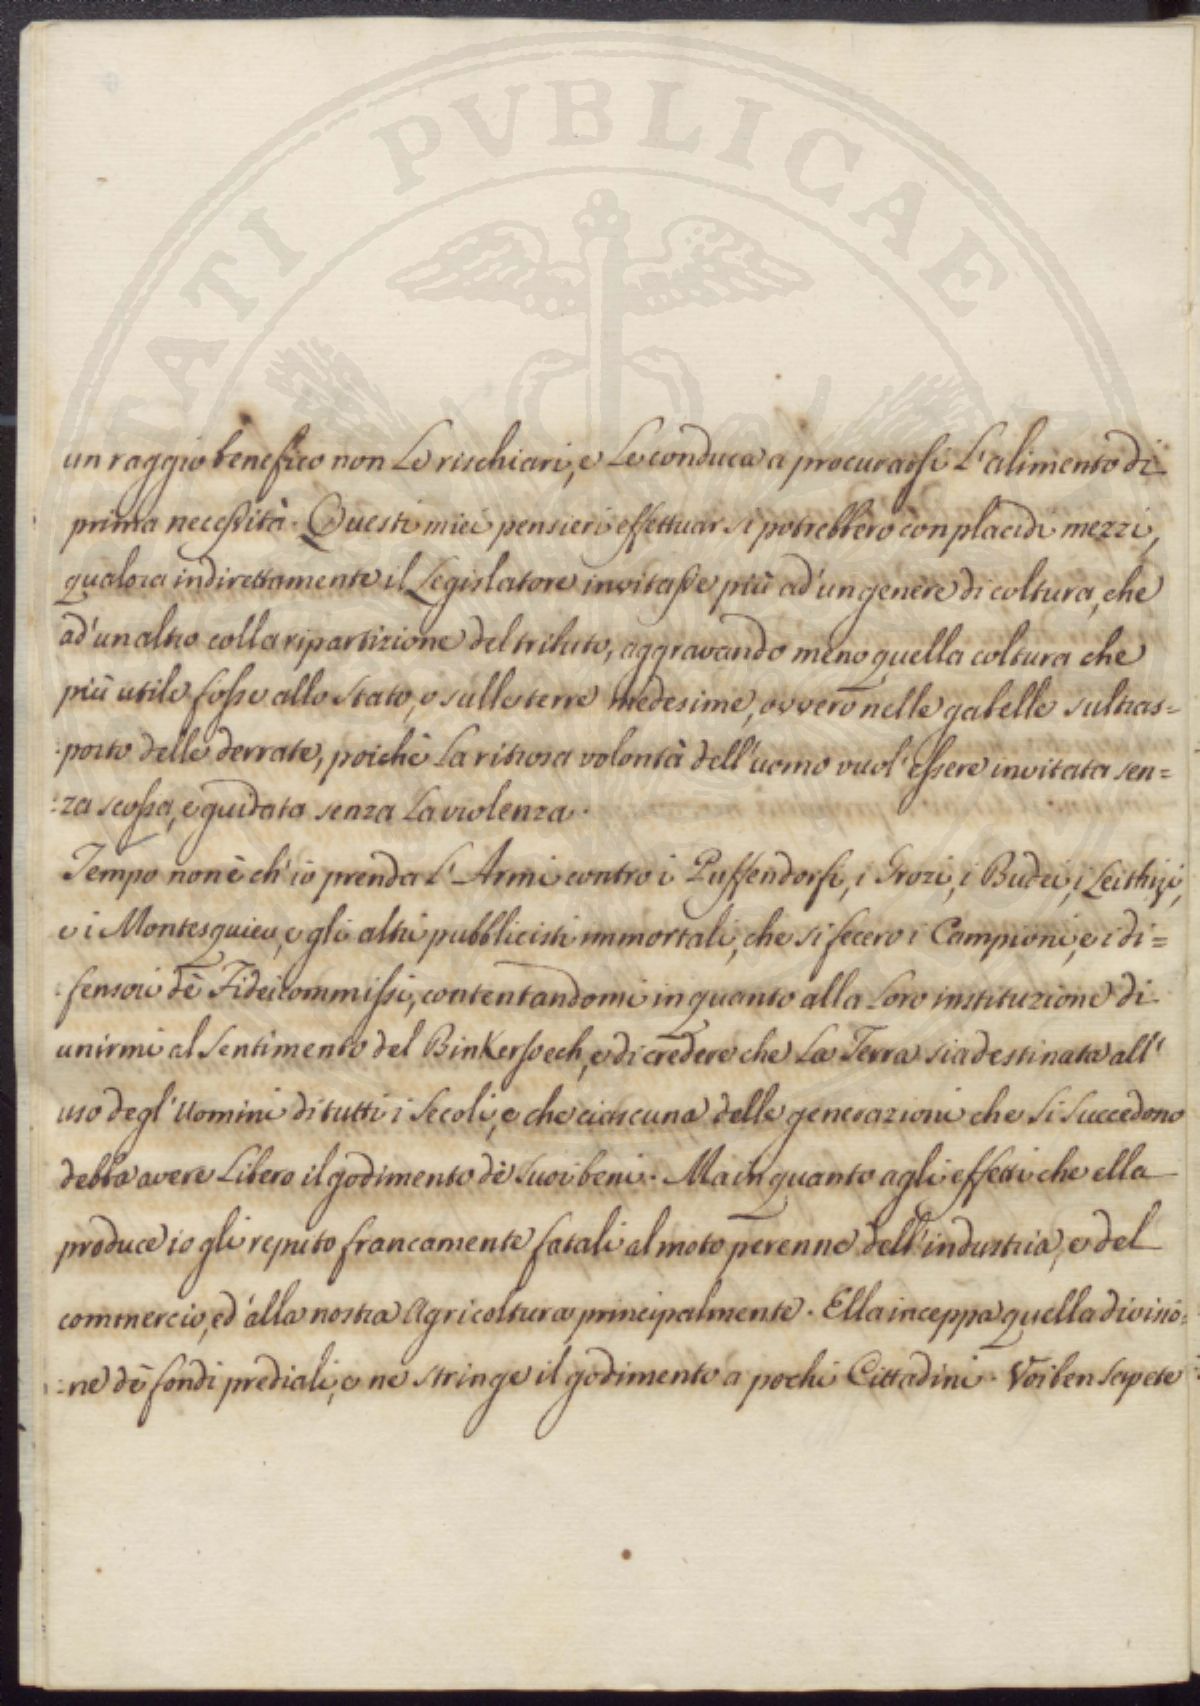 TATI PVBLICAE
un raggio benefico non le rischiari, e le conduca a procurarsi l'alimento di
prima necessità. Questi miei pensieri effettuar si potrebbero con placidi mezzi,
qualora indirettamente il Legislatore invitasse più ad'un genere di coltura, che
ad'un altro colla ripartizione del tributo, aggravando meno quella coltura che
più utile fosse allo Stato, o sulle terre medesime, ovvero nelle gabelle sul tras=
:porto delle derrate, poichè la ritrosa volontà dell'uomo vuol'essere invitata sen=
:za scossa, e guidata senza la violenza.
Tempo non è ch'io prenda l'Armi contro i Puffendorfi, i Grozi, i Budei, i
e i Montesquieu, e gli altri pubblicisti immortali, che si fecero i Campioni, e i di=
:fensori dè Fideicommissi, contentandomi in quanto alla loro instituzione di
unirmi al Sentimento del Binkerssech, e di credere che la Terra sia destinata all'
uso degl'Uomini di tutti i Secoli, e che ciascuna delle generazioni che si succedono
debba avere libero il godimento dè suoi beni. Ma in quanto agli effetti che ella
produce io gli reputo francamente fatali al moto perenne dell'industria, e del
commercio, ed'alla nostra Agricoltura principalmente. Ella inceppa quella divisio=
:ne dè fondi prediali, e ne stringe il godimento a pochi Cittadini. Voi ben sapete